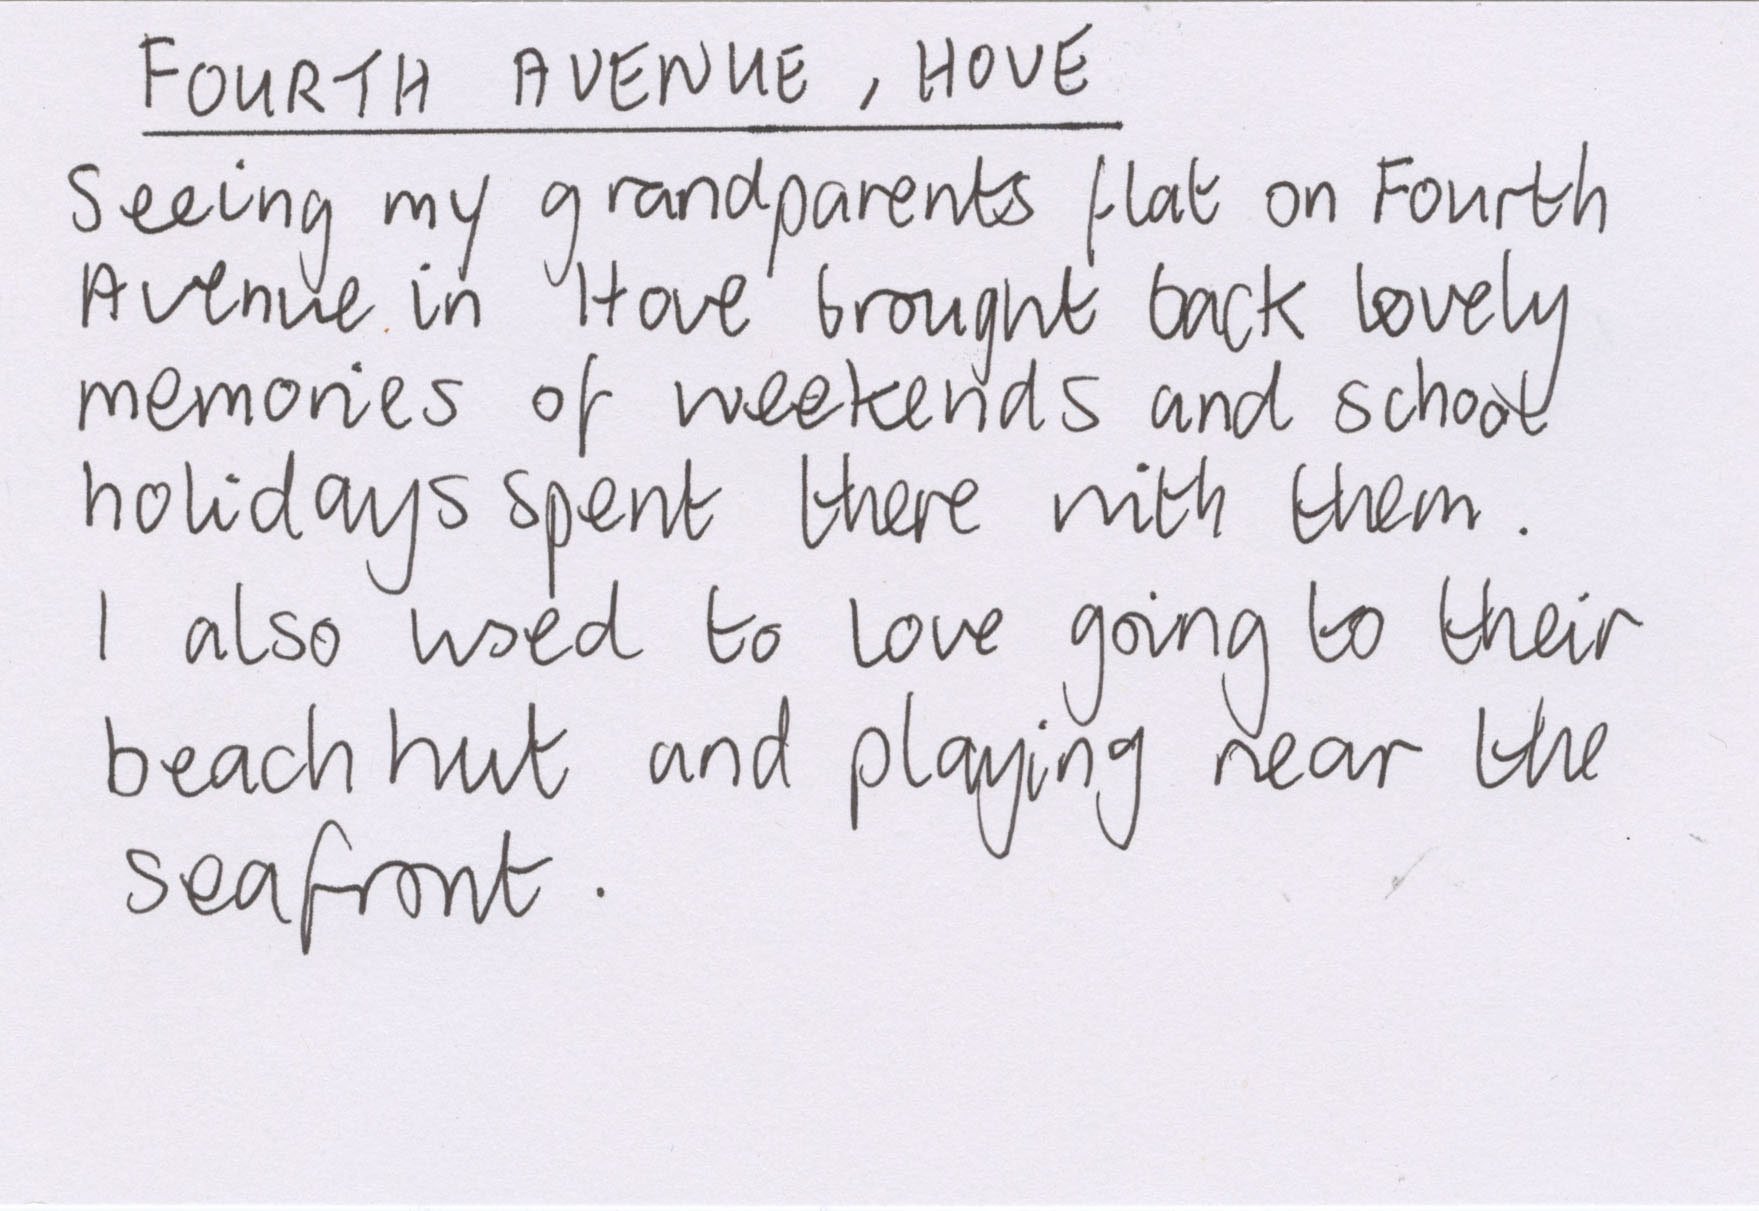 FOURTH AVENUE, HOVE
Seeing my grandparents flat on Fourth
Avenue in Hove brought back lovely
memories of weekends and school
holidays spent there with them.
I also used to love going to their
beach hut and playing near the
seafront.